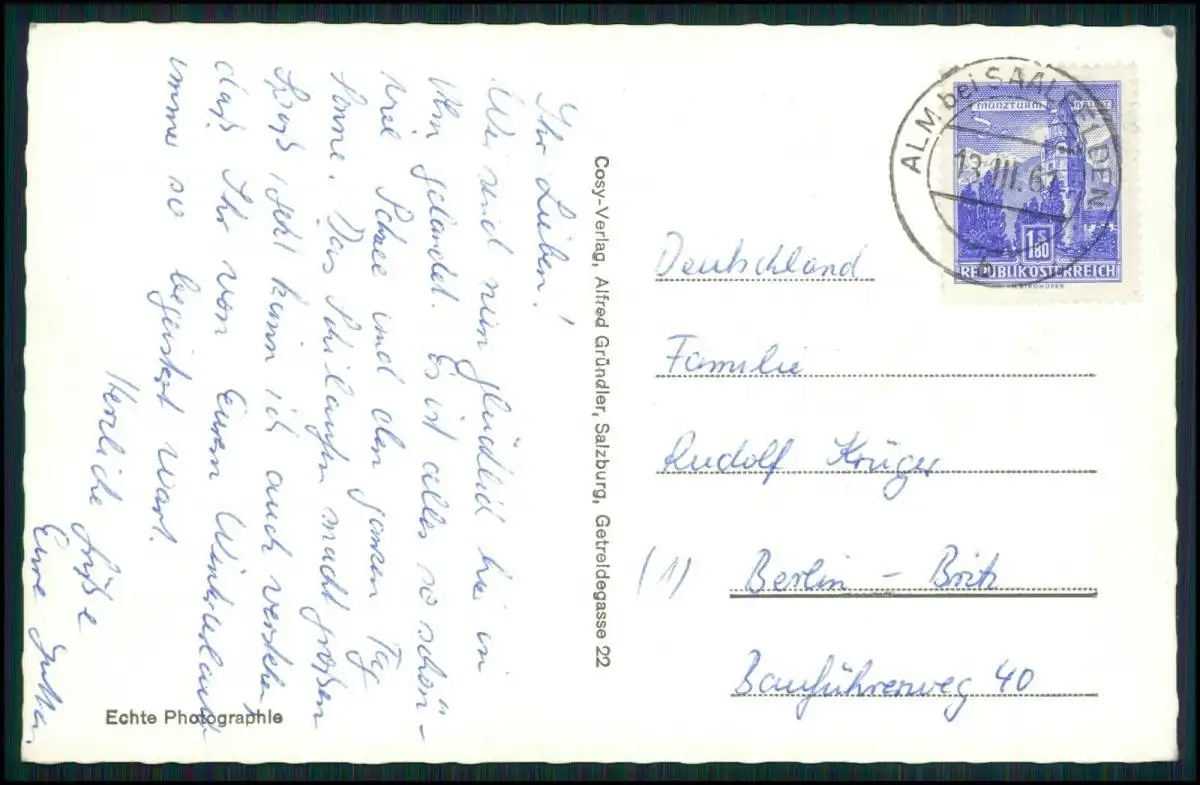 Ihr Lieben!
Wir sind nun glücklich hier in
Alm gelandet. Es ist alles so schön -
viel Schnee und den ganzen Tag
Sonne. Das Schilaufen macht großen
Spaß. Jetzt kann ich auch verstehen,
daß Ihr von Eurem Winterurlaub
immer so begeistert wart.
Herzliche Grüße
Eure Jutta.
Echte Photographie
Cosy-Verlag, Alfred Gründler, Salzburg, Getreidegasse 22
ALM bei SAALFELDEN
13.III.6
b
MÜNZTURM HALL
1 S 80
REPUBLIK ÖSTERREICH
Deutschland
Familie
Rudolf Krüger
(1) Berlin - Britz
Bauführerweg 40